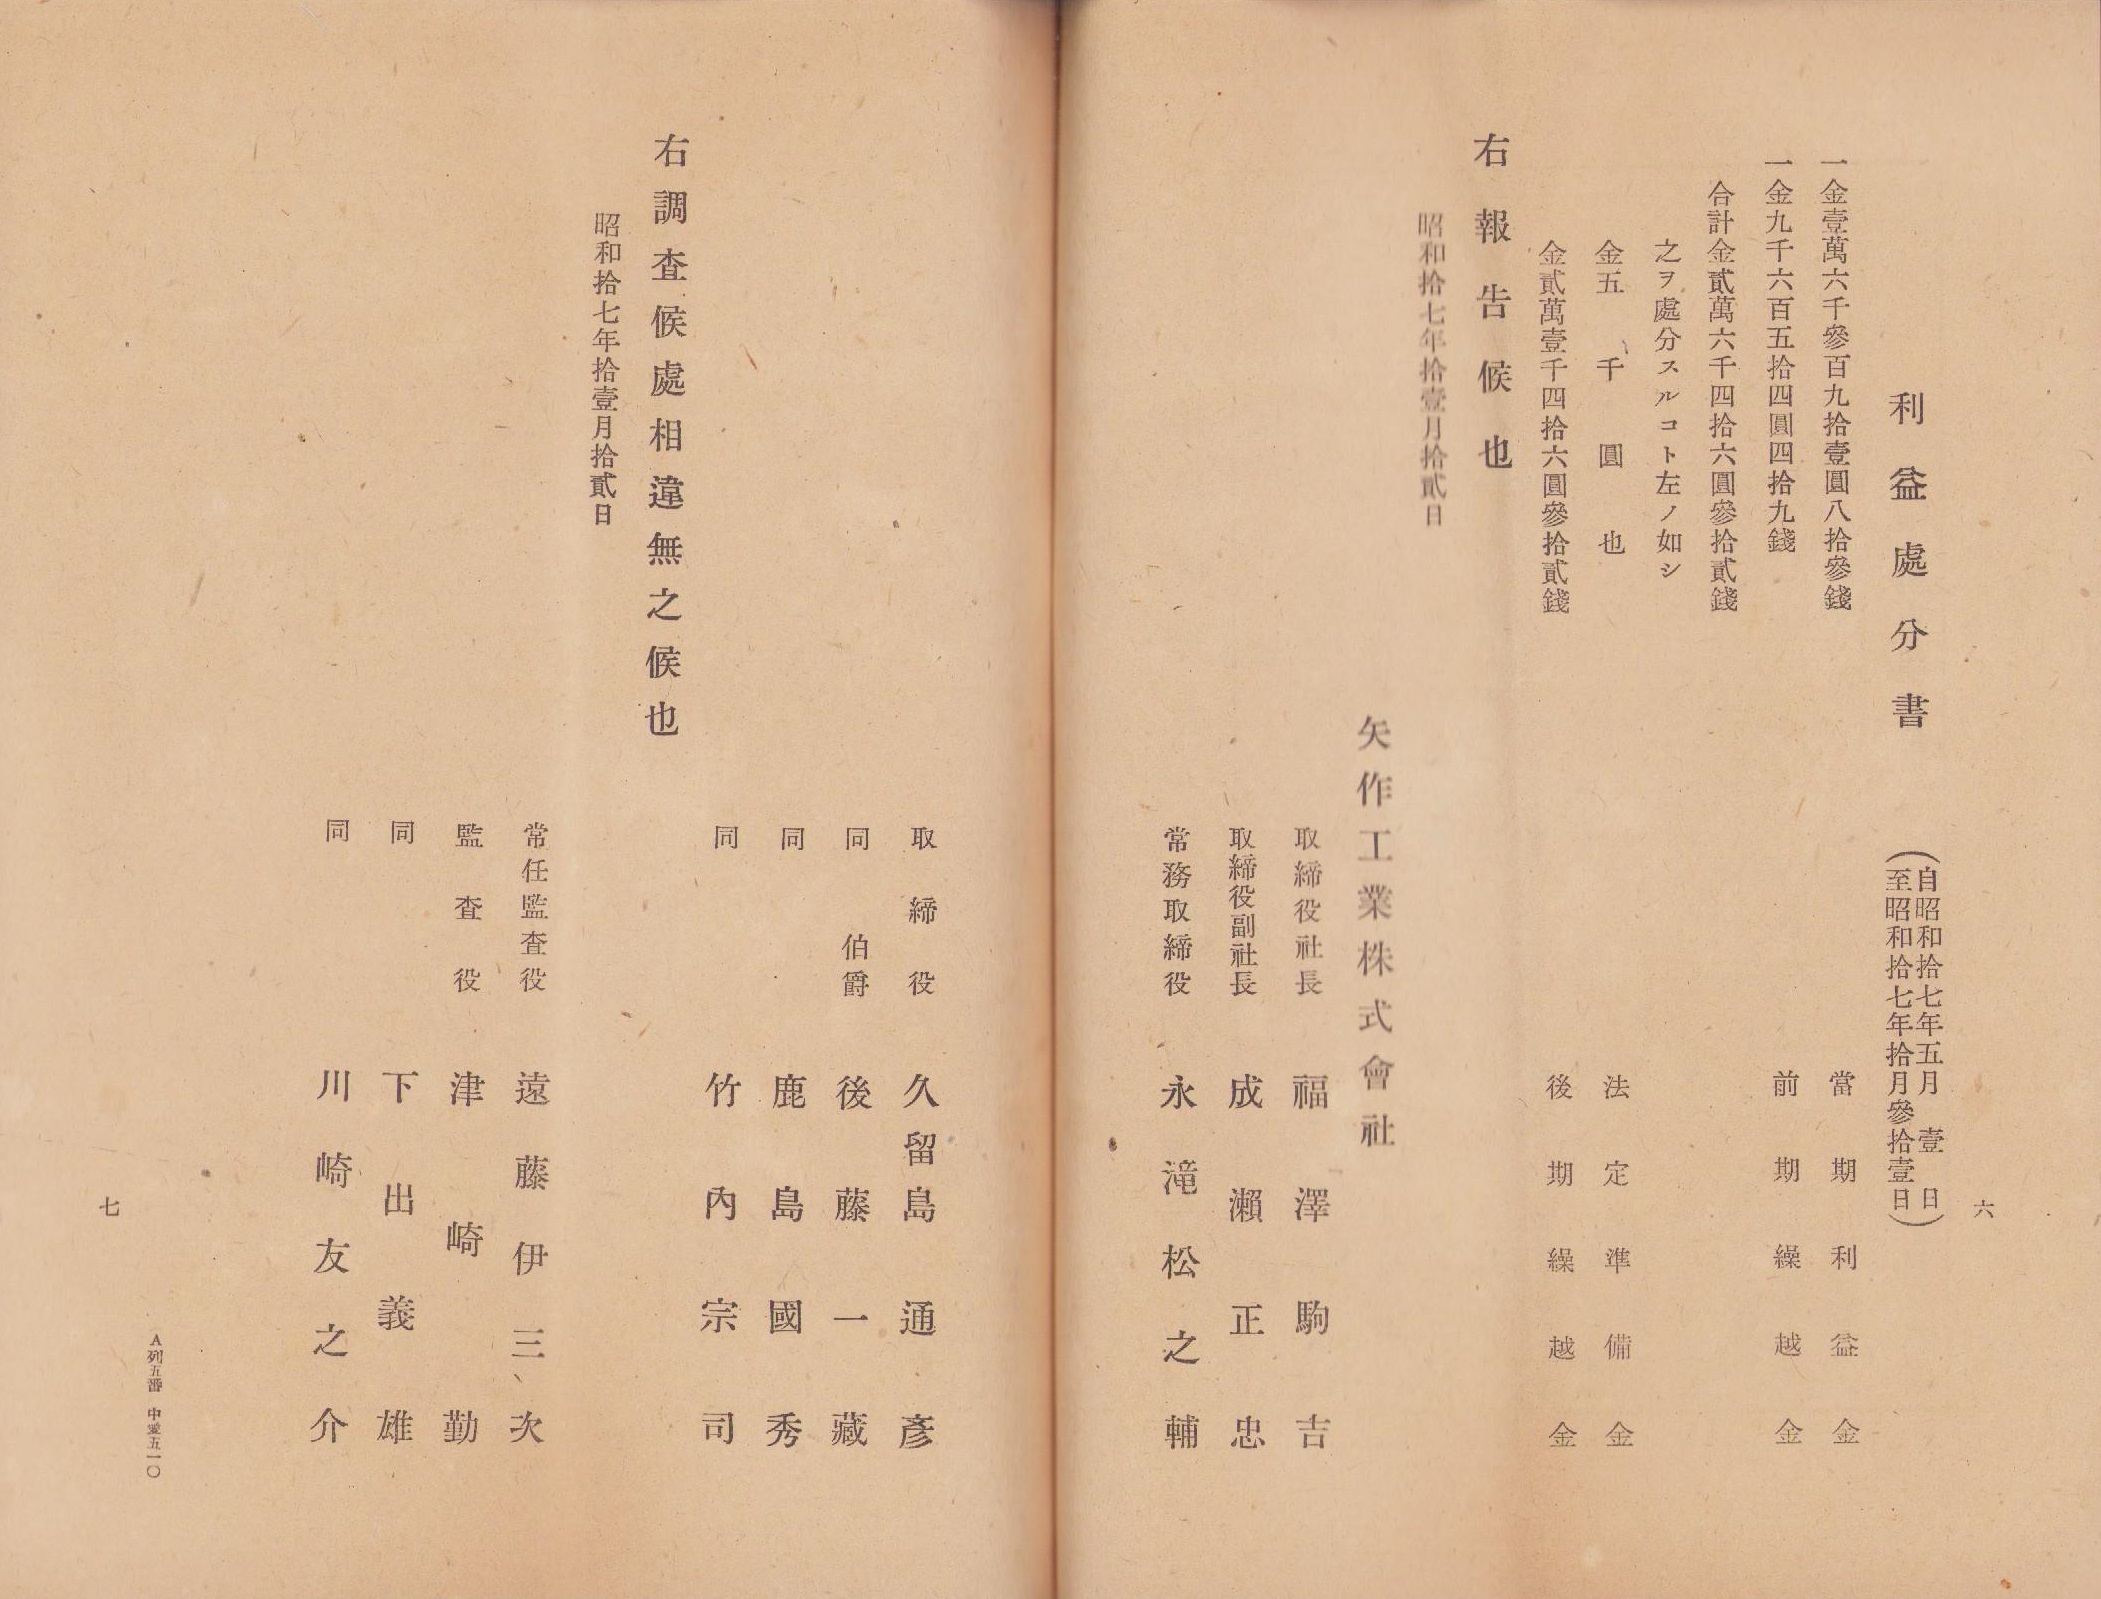 六
利益處分書（自昭和拾七年五月壹日
至昭和拾七年拾月參拾壹日）
一金壹萬六千參百九拾壹圓八拾參錢 當期利益金
一金九千六百五拾四圓四拾九錢 前期繰越金
合計金貳萬六千四拾六圓參拾貳錢
之ヲ處分スルコト左ノ如シ
金五千圓也 法定準備金
金貳萬壹千四拾六圓參拾貳錢 後期繰越金
右報告候也
昭和拾七年拾壹月拾貳日
矢作工業株式會社
取締役社長 福澤駒吉
取締役副社長 成瀨正忠
常務取締役 永滝松之輔
取締役 久留島通彥
同 伯爵 後藤一藏
同 鹿島國秀
同 竹內宗司
右調査候處相違無之候也
昭和拾七年拾壹月拾貳日
常任監査役 遠藤伊三次
監査役 津崎勤
同 下出義雄
同 川崎友之介
A列五番 中愛五一〇
七